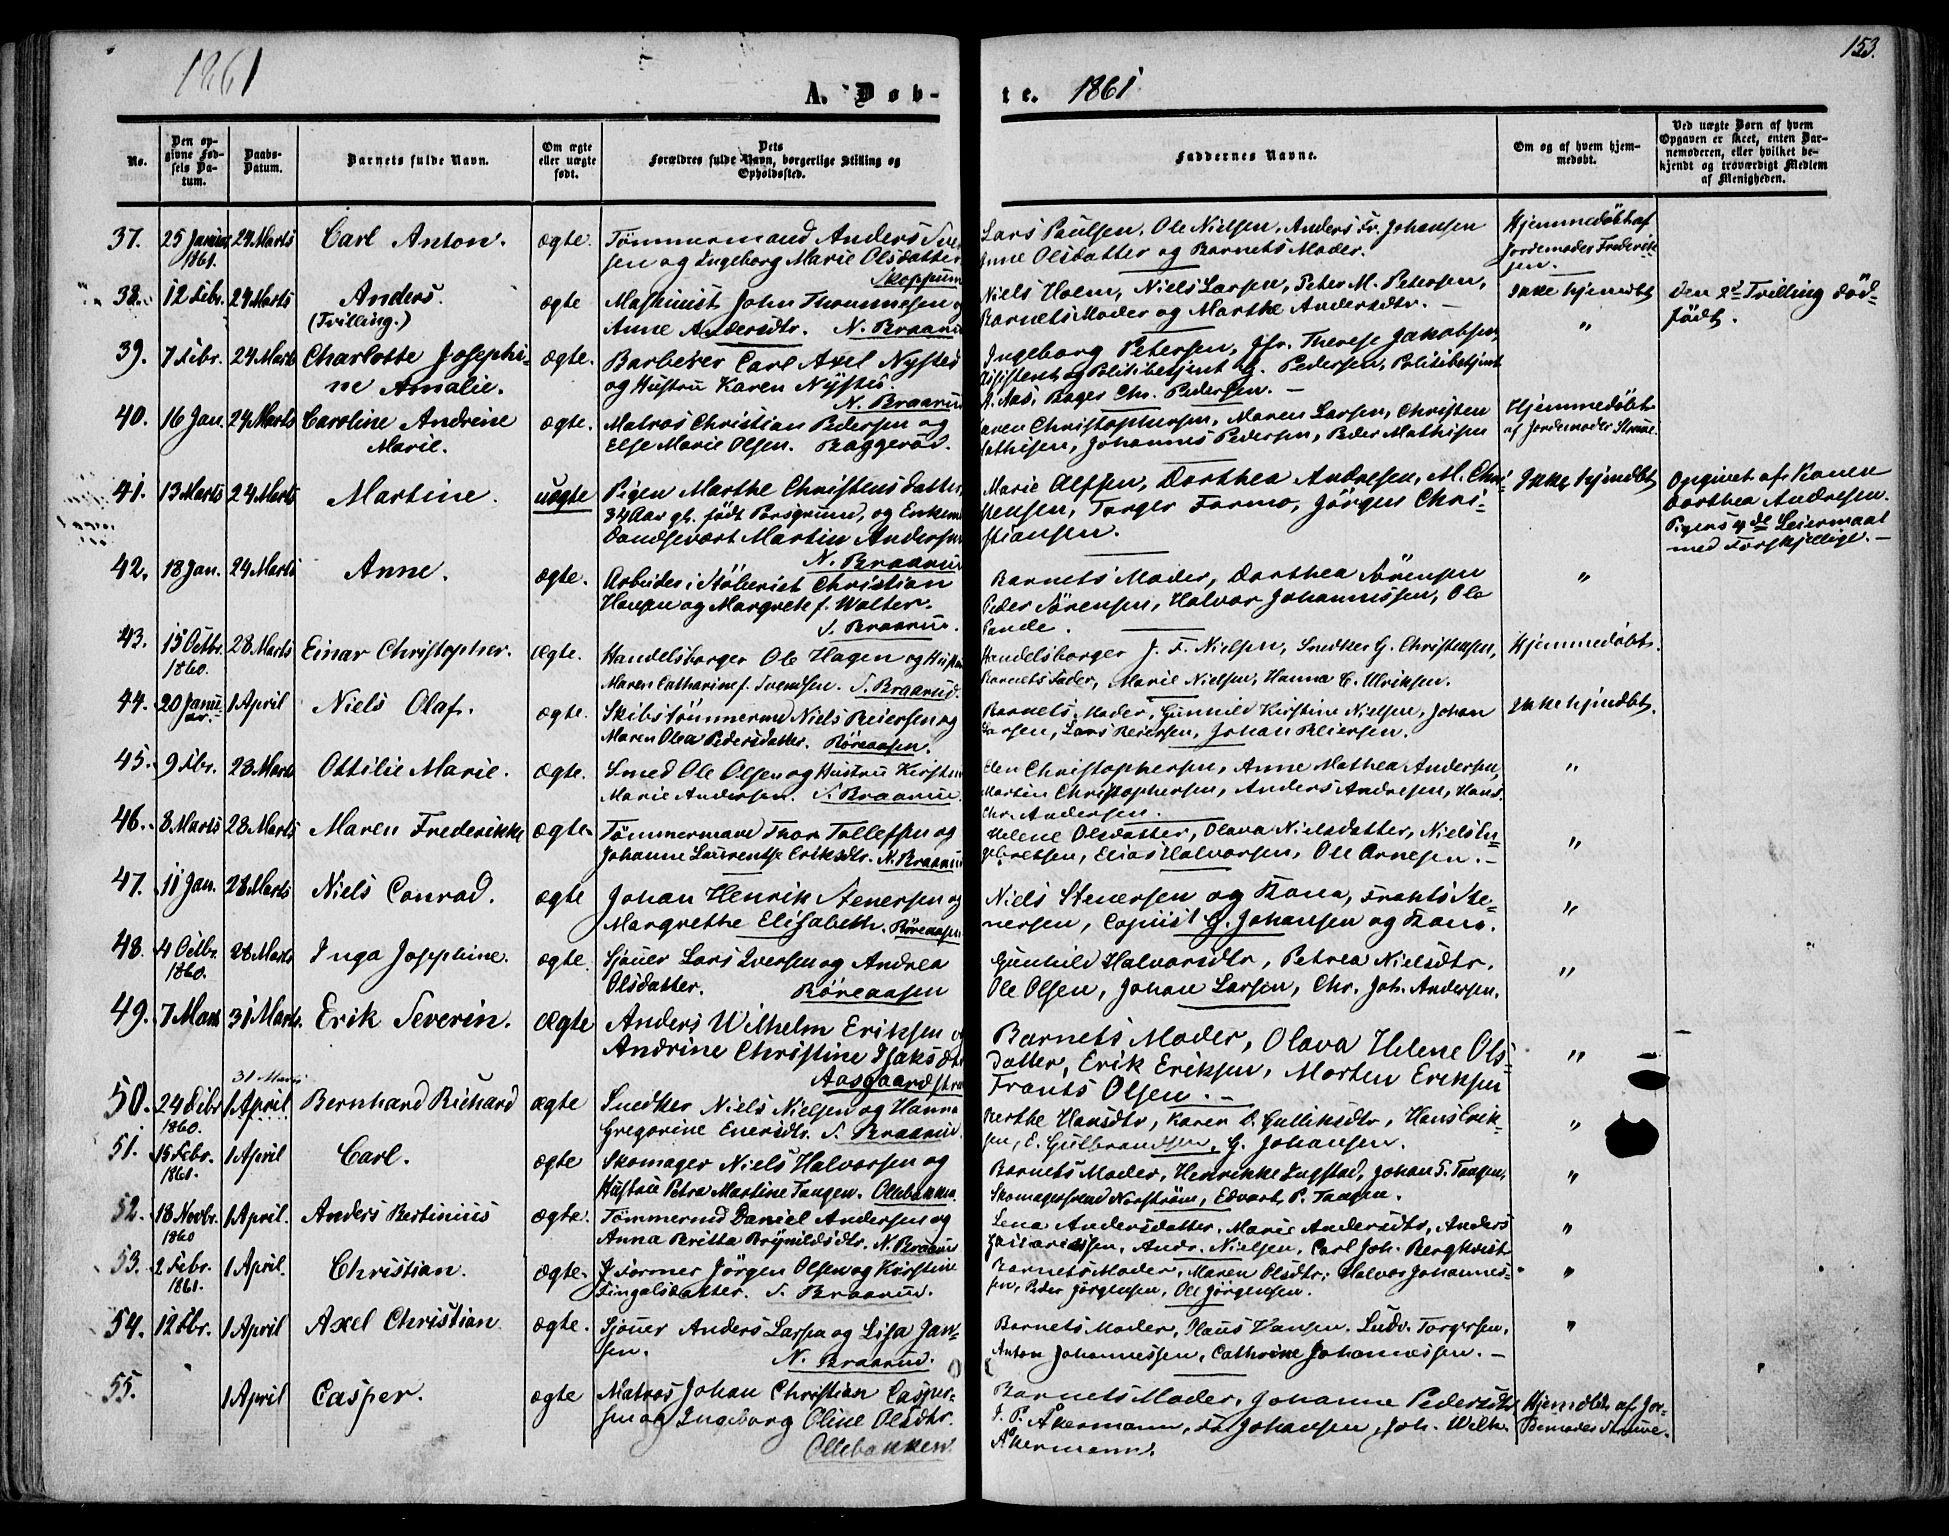 153.
1861
A. Døb-
te. 1861
No.
Den opgivne Fødsels Datum.
Daabs-Datum.
Barnets fulde Navn.
Om ægte eller uægte født.
Dets Forældres fulde Navn, borgerlige Stilling og Opholdssted.
Faddernes Navne.
Om og af hvem hjemmedøbt.
Ved uægte Børn af hvem Opgaven er skeet, enten Barnemoderen, eller hvilket bekjendt og troværdigt Medlem af Menigheden.
37. 25 Januar 1861. 24 Marts Carl Anton. ægte. Tømmermand Anders Sven-
sen og Ingeborg Marie Olsdatter
Skoppum
Lars Paulsen, Ole Nielsen, Anders Fr. Johansen
Anne Olsdatter og Barnets Moder.
Hjemmedøbt af
Jordemoder Frederik-
sen.
38. 12 Febr. 24 Marts Anders. ægte Maskinist John Thommesen og
(Tvilling.) Anne Andersdtr. N. Braarud
Niels Holm, Niels Larsen, Peter M. Petersen,
Barnets Moder og Marthe Andersdtr. —
Ikke hjemdbt
Den 2d Tvilling død-
født.
39. 7 Febr. 24 Marts Charlotte Josephi- ægte. Barberer Carl Axel Nystes
ne Amalie. og Hustru Karen Nystes.
N. Braarud
Ingeborg Petersen, Jfr. Therese Jakobsen,
Assistent og Politibetjent G. Pedersen, Politibetjent
A. Aas, Bager Chr. Pedersen. —
"
40. 16 Jan. 24 Marts Caroline Andreine ægte. Matros Christian Pedersen og
Marie. Else Marie Olsen. Baggerød.
Maren Christophersen, Maren Larsen, Christen
Mathisen, Johannes Pedersen, Peder Mathisen
Hjemmedøbt
af Jordemoder Struve.
41. 13 Marts 24 Marts Martine. uægte Pigen Marthe Christensdatter
34 Aar gl. født Porsgrund, og Enkem
Dandsevært Martin Andersen
N. Braarud
Marie Olsen, Dorthea Andresen, M. Chri-
stensen, Torger Formo, Jörgen Chri-
stiansen.
Ikke hjemdbt
Opgivet af Konen
Dorthea Andresen.
Pigens 4de Leiermaal
med Forskjellige. —
42. 18 Jan. 24 Marts Anne. ægte. Arbeider i Støberiet Christian
Hansen og Margrete f. Walter.
S. Braarud.
Barnets Moder, Dorthea Sörensen
Peder Sörensen, Halvor Johannessen, Ole
Pande.
"
43. 15 Octbr. 1860. 28 Marts Einar Christopher. Ægte. Handelsborger Ole Hagen og Hustru
Maren Catharine f. Svendsen. S. Braarud.
Handelsborger J. F. Nielsen, Snedker G. Christensen,
Barnets Fader, Marie Nielsen, Hanna C. Ulriksen.
Hjemmedøbt.
44. 20 Januar. 1 April Niels Olaf. ægte. Skibstömmermd Niels Reiersen og
Maren Olea Pedersdatter. Röreaasen.
Barnets Moder, Gunhild Kirstine Nielsen, Johan
Larsen, Lars Reiersen, Johan Reiersen.
Ikke hjemdbt.
45. 9 Fbr. 28 Marts Ottilie Marie. ægte. Smed Ole Olsen og Hustru Kirsten
Marie Andersen. S. Braarud.
Elen Christophersen, Anne Mathea Andersen,
Martin Christophersen, Anders Andresen, Hans
Chr. Andersen.
"
46. 8 Marts 28 Marts Maren Frederikke ægte. Tømmermand Thor Tollefsen og
Johanne Laurentse Eriksdtr. N. Braarud
Helene Olsdatter, Olava Nielsdatter, Niels In-
gebretsen, Elias Halvorsen, Ole Arnesen. —
"
47. 11 Jan. 28 Marts Niels Conrad. ægte Johan Henrik Stenersen og
Margrethe Elisabeth. Röreaasen
Niels Stenersen og Kona, Frants Ste-
nersen, Copiist G. Johansen og Kona.
"
48. 4 Octbr. 1860. 28 Marts Inga Josephine. ægte. Sjöuer Lars Iversen og Andrea
Olsdatter. Röreaasen
Gunhild Halvorsdtr, Petrea Nielsdtr.
Ole Olsen, Johan Larsen, Chr. Joh. Andersen.
"
49. 7 Marts 31 Marts. Erik Severin. Ægte Anders Wilhelm Eriksen og
Andrine Christine Isaksdtr
Aasgaardstran
Barnets Moder, Olava Helene Ols-
datter, Erik Eriksen, Morten Eriksen
Frants Olsen. —
"
50. 24 Febr 1860. 31 Marts 1 April Bernhard Richard ægte Snedker Niels Nielsen og Hanna
Gregorine Enersdtr. S. Braarud.
Berthe Hansdtr, Karen D. Gulliksdtr, Hans Erik-
sen, E. Gulbrandsen, G. Johansen.
"
51. 15 Febr. 1861. 1 April Carl. ægte Skomager Niels Halvorsen og
Hustru Petra Martine Tangen. Ollebakken.
Barnets Moder, Henrikke Lugstad, Johan T. Tangen,
Skomagersvend Norström, Edvart P. Tangen.
"
52. 18 Novbr. 1860 1 April. Anders Bertinius ægte. Tömmermd Daniel Andersen og
Anna Britta Brynildsdtr. N. Braarud
Lena Andersdatter, Marie Andersdtr, Anders
Zakariassen, Andr. Nielsen, Carl Joh. Bergkvist
"
53. 2 Febr. 1861. 1 April. Christian. ægte. J. Former Jörgen Olsen og Kirstine
Fingalsdatter. S. Braarud.
Barnets Moder, Maren Olsdtr, Halvor Johannes-
sen, Peder Jörgensen, Ole Jörgensen.
"
54. 12 Fbr. 1 April Axel Christian ægte. Sjöuer Anders Larsen og Lisa Jan-
sen. N. Braarud.
Barnets Moder, Klaus Hansen, Ludv. Torgersen,
Anton Johannessen, Cathrine Johannessen. —
"
55. 1 April Casper. ægte Matros Johan Christian Casper-
sen og Ingeborg Oline Olsdtr.
Ollebakken
Barnets Moder, Johanne Pedersdtr
J. P. Åkermann, Fr. Johansen, Joh. Wilh.
Åkermann.
Hjemdbt af Jor-
demoder Struve.